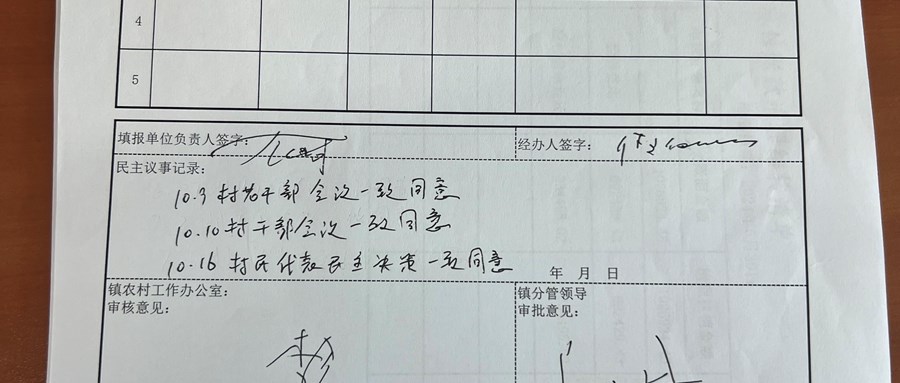 4
5
填报单位负责人签字：
经办人签字：
民主议事记录：
10.3 村老干部会议一致同意
10.10 村干部会议一致同意
10.16 村民代表民主决策一致同意
年 月 日
镇农村工作办公室：
审核意见：
镇分管领导
审批意见：